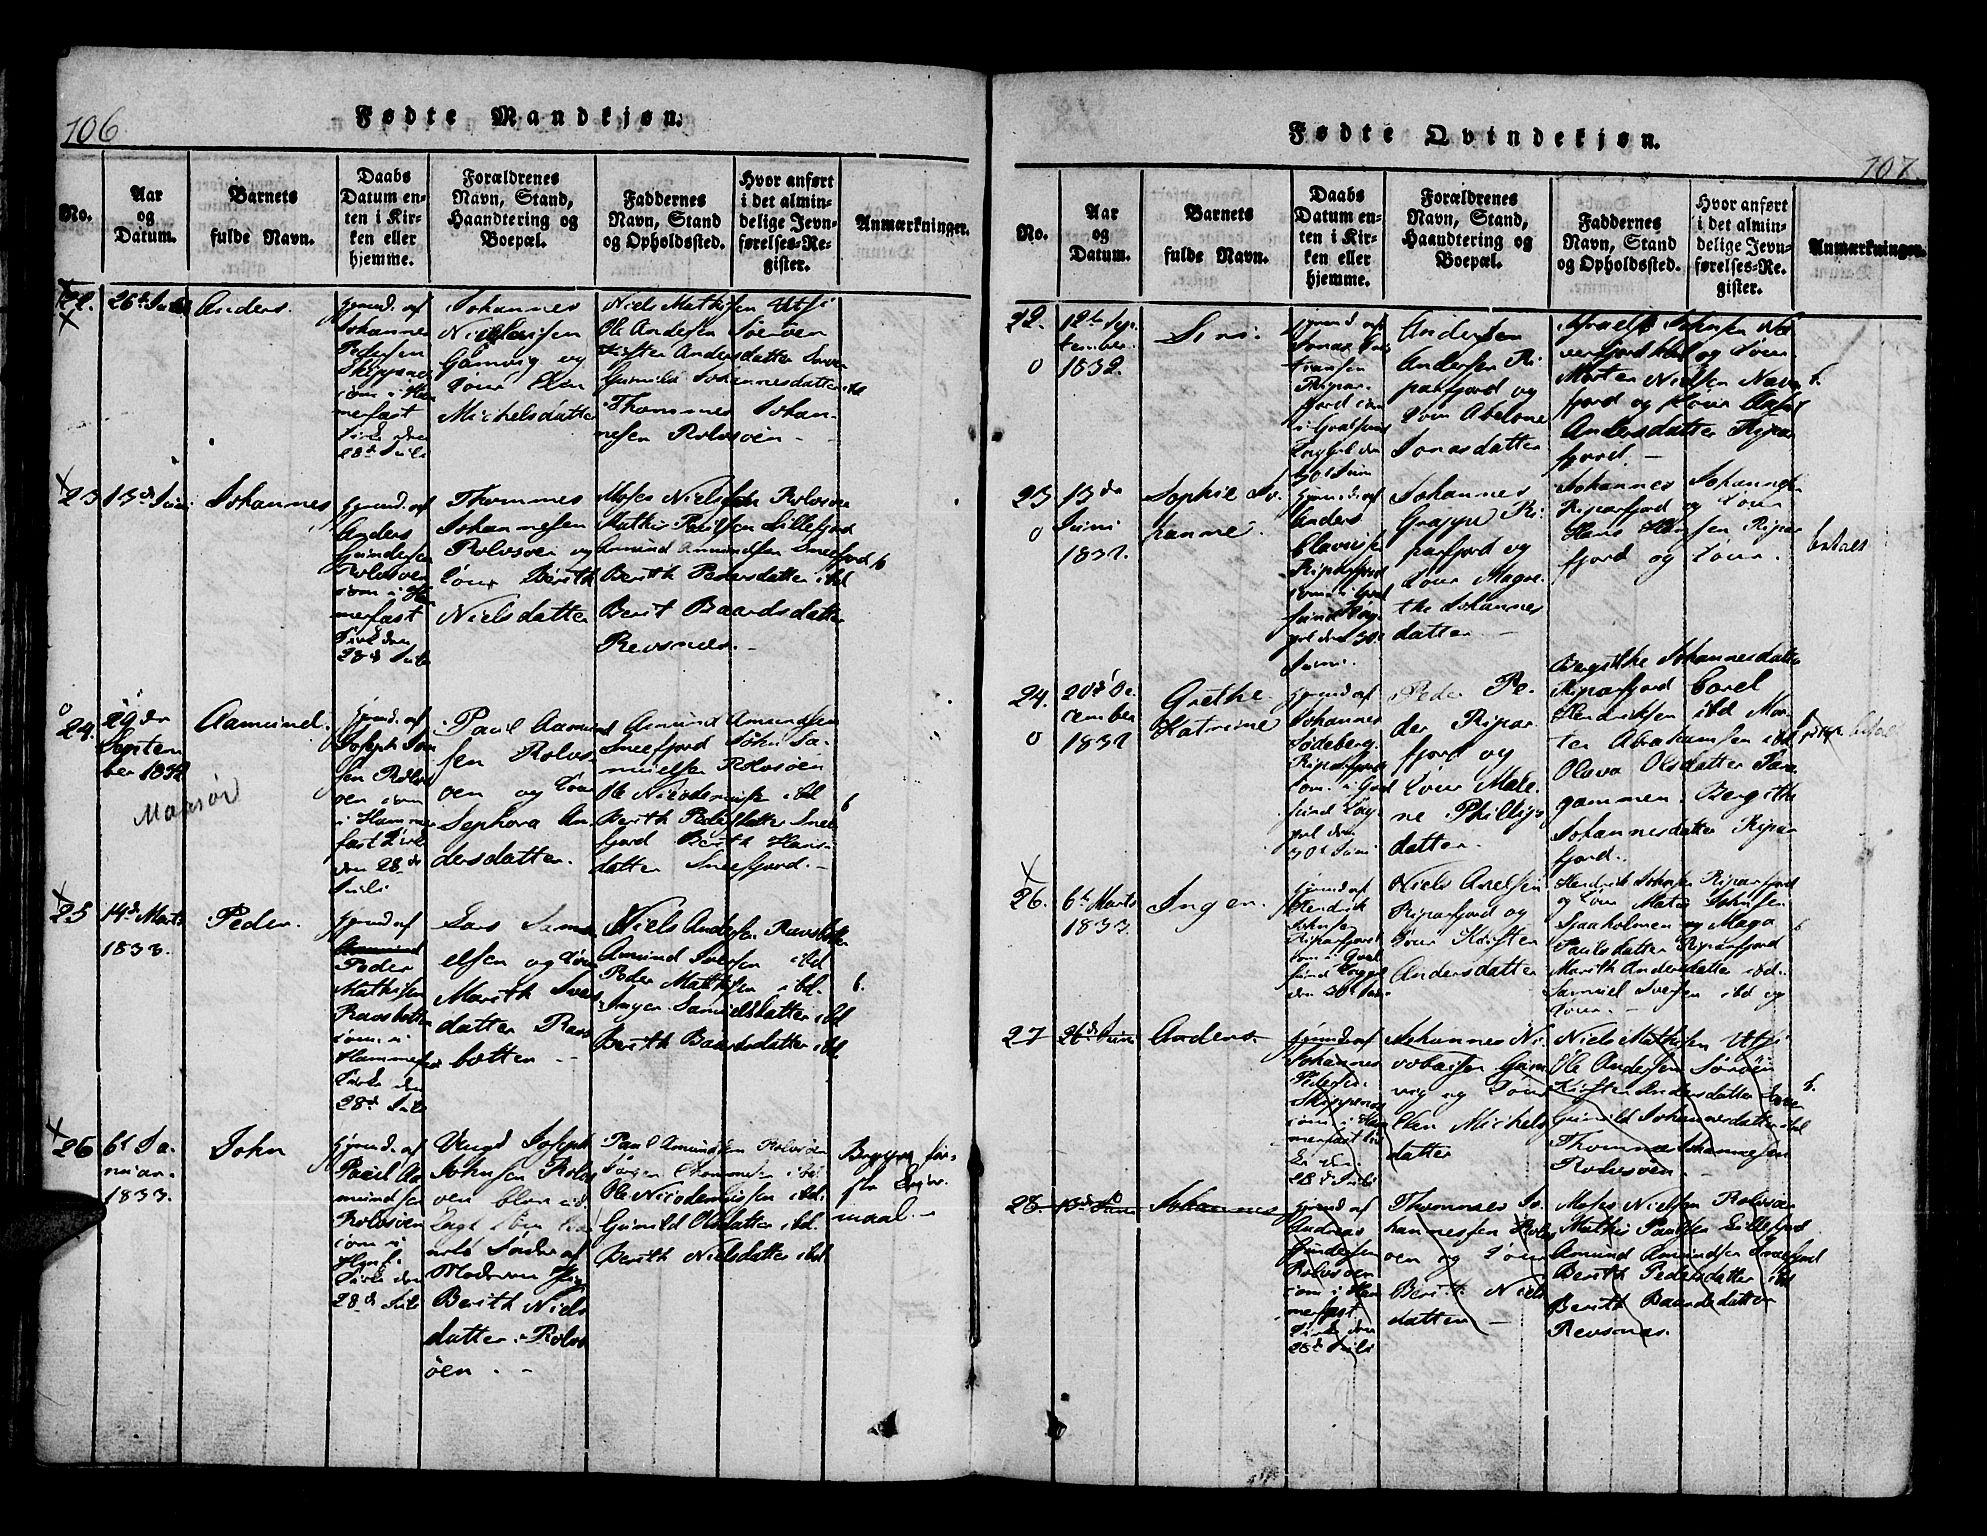 106.
Fødte Mandkjøn.
No.
Aar
og
Datum.
Barnets
fulde Navn.
Daabs
Datum en-
ten i Kir-
ken eller
hjemme.
Forældrenes
Navn, Stand,
Haandtering og
Boepæl.
Faddernes
Navn, Stand
og Opholdssted.
Hvor anført
i det almin-
delige Jevn-
førelses-Re-
gister.
Anmærkninger.
22.
26de Juni
Anders.
hjemd. af
Johannes
Pedersen
Skippernæs
som i Ham
merfast
Kirke den
28de Juli
Johannes
Gamvig og
Kone Elen
Michelsdatter
Niels Mathisen Utsi
Ole Andersen Sørøen
Kirsten Andersdatter
Gunild Johannesdatter ibd
Thommes Johan-
nesen Rolvsøen
23
13de Juni
Johannes
hjemd. af
Anders
Gundersen
Rolvsøen
som i Ham
merfast
Kirke den
28de Juli
Thommes
Johannesen
Rolvsøen og
Kone Berith
Nielsdatter
Moses Nielsen Rolvsøen
Mathis Paulsen Lillefjord
Amund Amundsen Sneefjord
Berith Pedersdatter ibd
Berit Baardsdatter
Revsnæs.
24.
29de
Septem
ber 1832
Aamund.
Maasøe
hjemd. af
Joseph John
sen Rolvs
øen som
i Hammer
fast Kirke
den 28de
Juli
Paul Aamund
sen Rolvs
øen og Kone
Sephora An
dersdatter.
Amund Amundsen
Sneefjord John Sa-
muelsen Rolvsøen
Ole Nicodemusen ibd
Berith Pedersdatter Snee
fjord Berith Hans-
datter Sneefjord.
b
25
14de Marts
1833.
Peder.
hjemd af
Peder
Mathisen
Ravsbotten
som i
Hammerfast
Kirke den
28de Juli
Lars Samu
elsen og Kone
Marith Ivers
datter Ravs
botten
Niels Andersen Ravsbotten
Amund Iversen ibd
Peder Mathisen ibd.
Inger Samuelsdatter ibd
Berith Baardsdatter ibd.
b.
26
6te Ja-
nuar
1833.
John
hjemd. af
Paul Aa
mundsen
Rolvsøen
som i
Hamf.
Kirke den
28de Juli
Ungd Joseph
Johnsen Rolvs
øen
Moderen Pig
Berith Niels
datter Rolvs
øen.
Paul Amundsen Rolvsøen
Jørgen Thommesen ibd
Ole Nicodemusen ibd.
Gunild Olsdatter ibd.
Berith Nielsdatter ibd
Begges før-
ste Leier-
maal.
107.
Fødte Qvindekjøn.
No.
Aar
og
Datum.
Barnets
fulde Navn.
Daabs
Datum en-
ten i Kir-
ken eller
hjemme.
Forældrenes
Navn, Stand,
Haandtering og
Boepæl.
Faddernes
Navn, Stand
og Opholdssted.
Hvor anført
i det almin-
delige Jevn-
førelses-Re-
gister.
Anmærkninger.
22.
12te Sep
tember
1832.
hjemd af
Jonas
Ripar-
fjord som
i Qvalsund
Capel den
30te Juni
Andersen
Andersen Ri
parfjord og
Kone Abelone
Jonasdatter
Morten Nielsen
fjord og Kone
Andersdatter Ripar
fjord.
b.
23
13de
Juni
1832.
Sophie Jo
hanne.
hjemd. af
Anders
Olavesen
Riparfjord
som i Qval
sund Cap-
pel den 30te
Juni.
Johannes
Grappe Ri
parfjord og
Kone Magre
the Johannes
datter
Johannes Johannsen
Riparfjord og Kone
Hans Hansen Ripar
fjord og Kone.
betalt
24.
20de De
cember
1832
Grethe
Katrine
hjemd af
Johannes
Søderberg
Riparfjord
som i Qval
sund Cap
pel den
30te Juni
Peder Pe
der Ripar
fjord og
Kone Male
ne Phillips
datter.
Bergithe Johannesdatter
Riparfjord Carel
Hendriksen ibd Mor
ten Abrahamsen ibd
Olava Olsdatter
gammen. Bergithe
Johannesdatter Ripar
fjord.
26.
6te Marts
1833.
Inger.
hjemd af
Hendrik
Johnsen
Riparfjord
som i Qval
sund Cappel
den 30te Juni
Niels Axelsen
Riparfjord og
Kone Kirsten
Andersdatter
Hendrik Johnsen Riparfjord
og Kone Mates Johnsen
Sjaaholmen og Maga
Paulsdatter Riparfjord
Marith Andersdatter ibd.
Samuel Iversen ibd og
Kone.
27
26de Juni
Anders.
hjemd af
Johannes
Pedersen
Skippernæs
som i Ham
merfast Kir
ke den
28de Juli
Johannes Ni
Gam
vig og Kone
Elen Michels
datter
Niels Mathisen Utsi
Ole Andersen Sørøen
Kirsten Andersdatter
Gunild Johannesdatter ibd
Thommes Johannesen
Rolvsøen
b.
28
13de Juni
Johannes
hjemd af
Andreas
Gundersen
Rolvsøen
som i Ham
merfast
Kirke den
28de Juli
Thommes Jo
hannessen Rolvs
øen og Kone
Berith Niels
datter
Moses Nielsen Rolvsøen
Mathis Paulsen Lillefjord
Amund Amundsen Sneefjord
Berith Pedersdatter ibd
Berith Baardsdatter
Revsnæs.